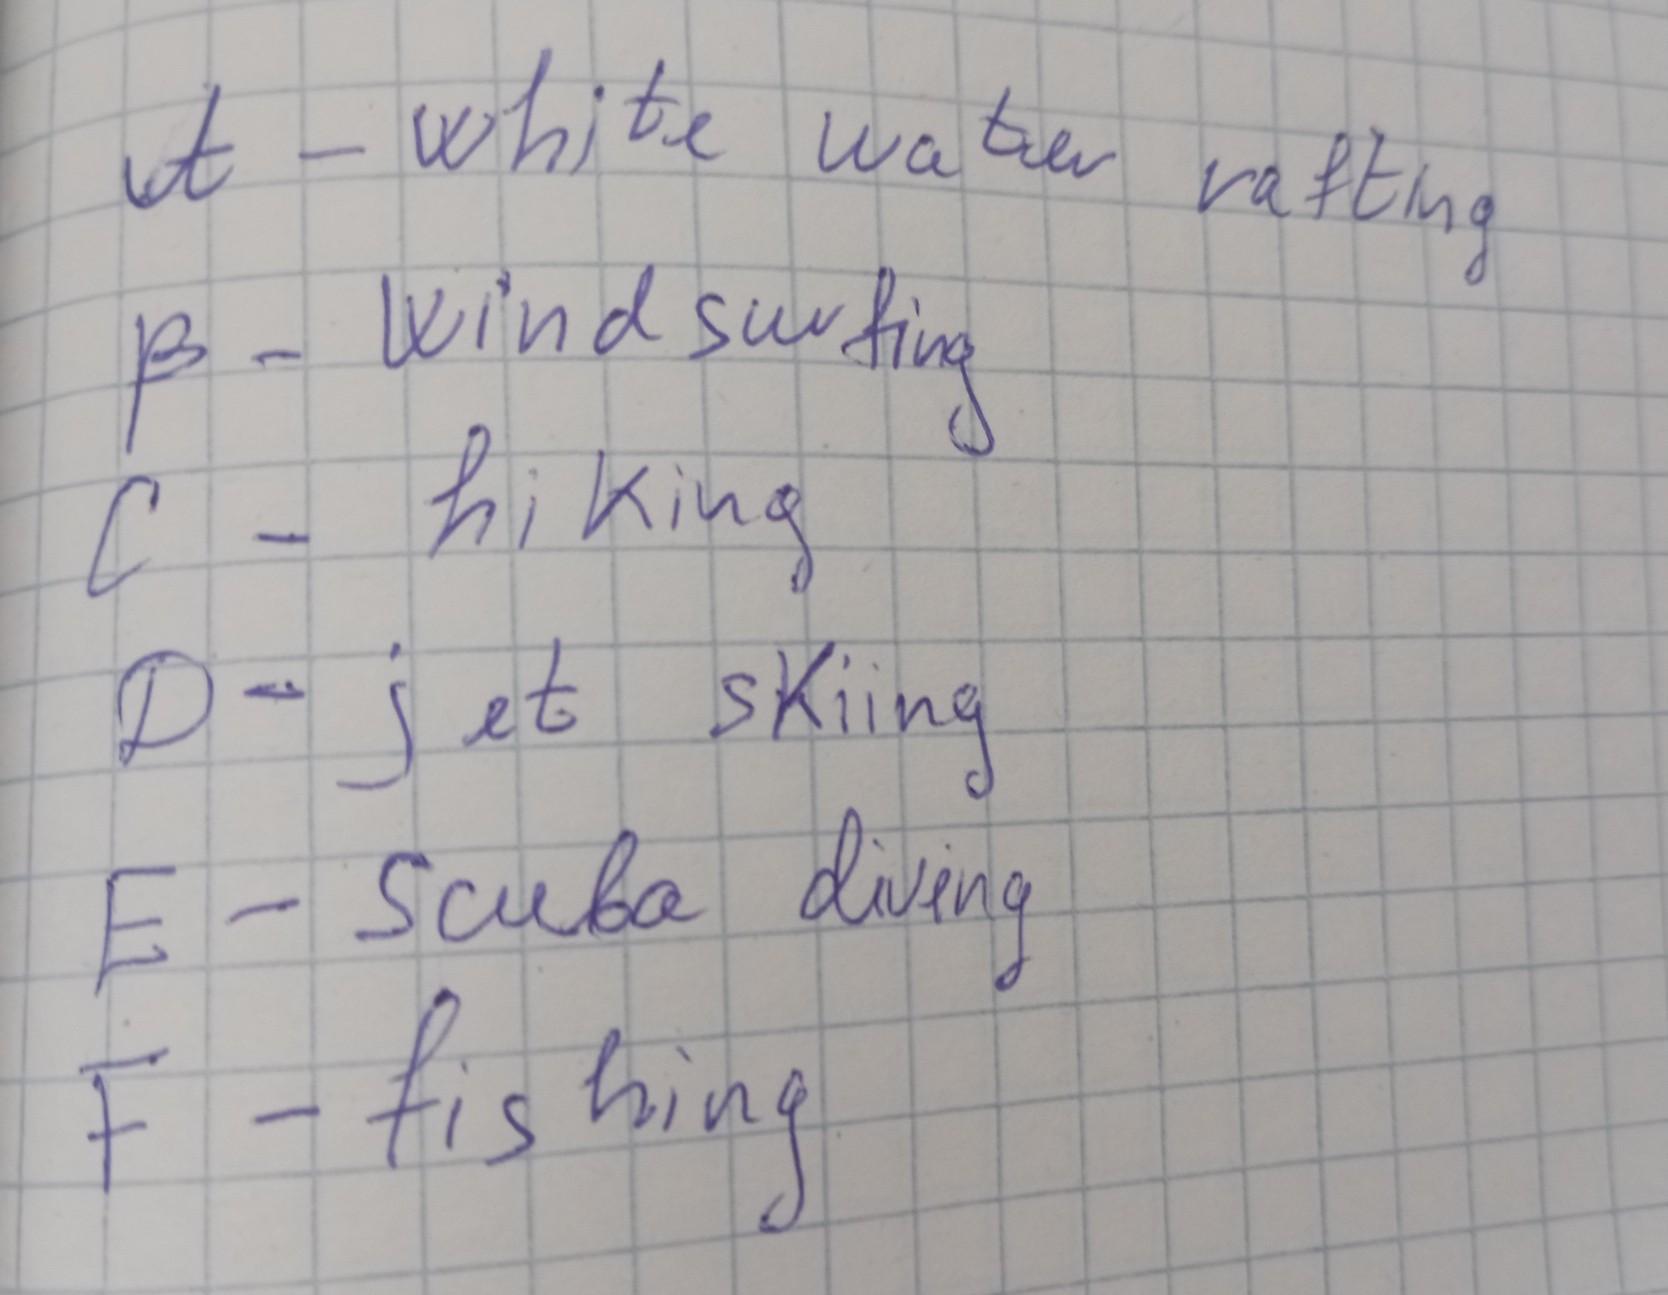 A - white water rafting
B - windsurfing
C - hiking
D - jet skiing
E - Scuba diving
F - fishing